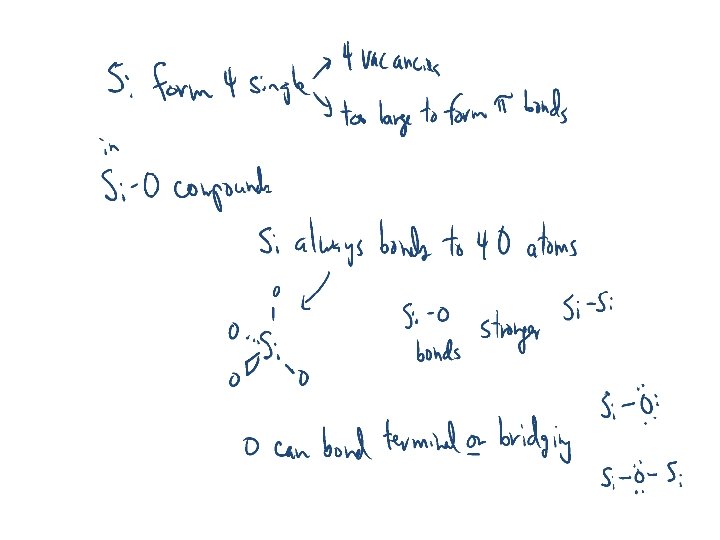 Si form 4 single
4 vacancies
too large to form π bonds
in
Si-O compounds
Si always bonds to 4 O atoms
O
O Si
O O
Si-O bonds stronger Si-Si
Si-O
O can bond terminal or bridging
Si-O-Si